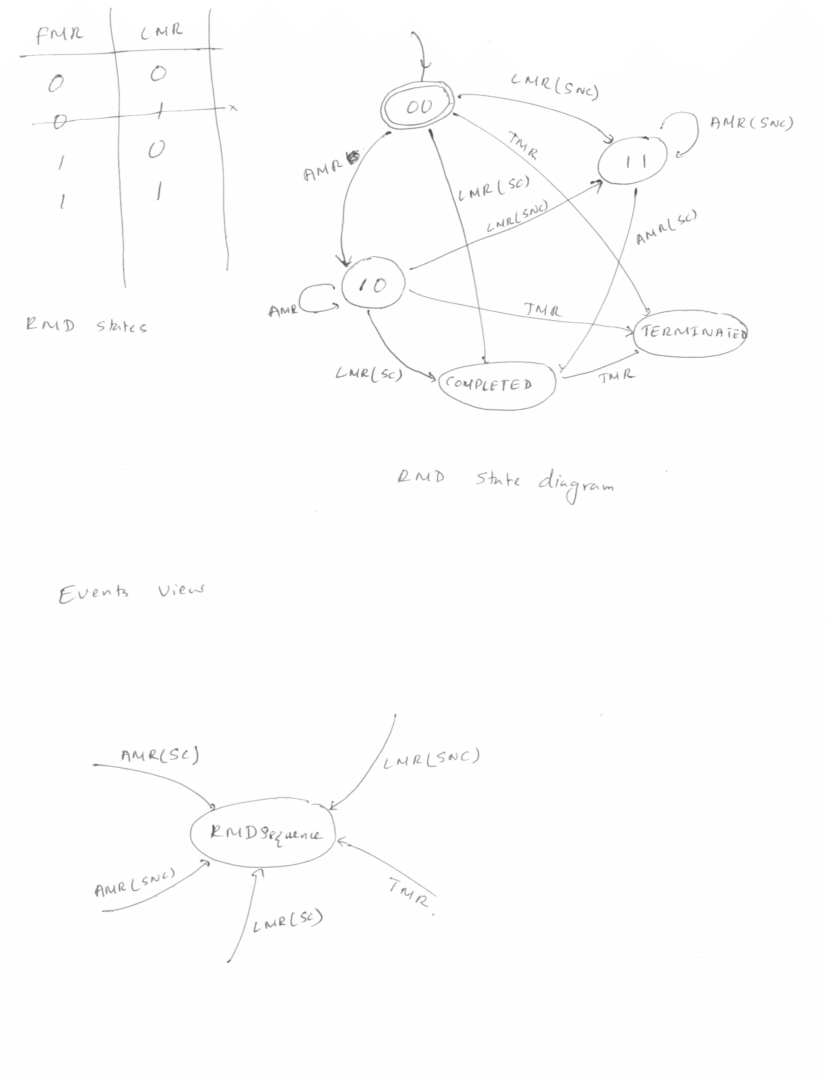 FMR LMR
0 0
0 1 x
1 0
1 1
RMD states
00
LMR(SNC)
11
AMR(SNC)
AMR
TMR
LMR(SC)
LMR(SNC)
AMR(SC)
10
AMR
TMR
TERMINATED
LMR(SC)
COMPLETED
TMR
RMD state diagram
Events view
AMR(SC)
LMR(SNC)
RMDSequence
AMR(SNC)
TMR.
LMR(SC)